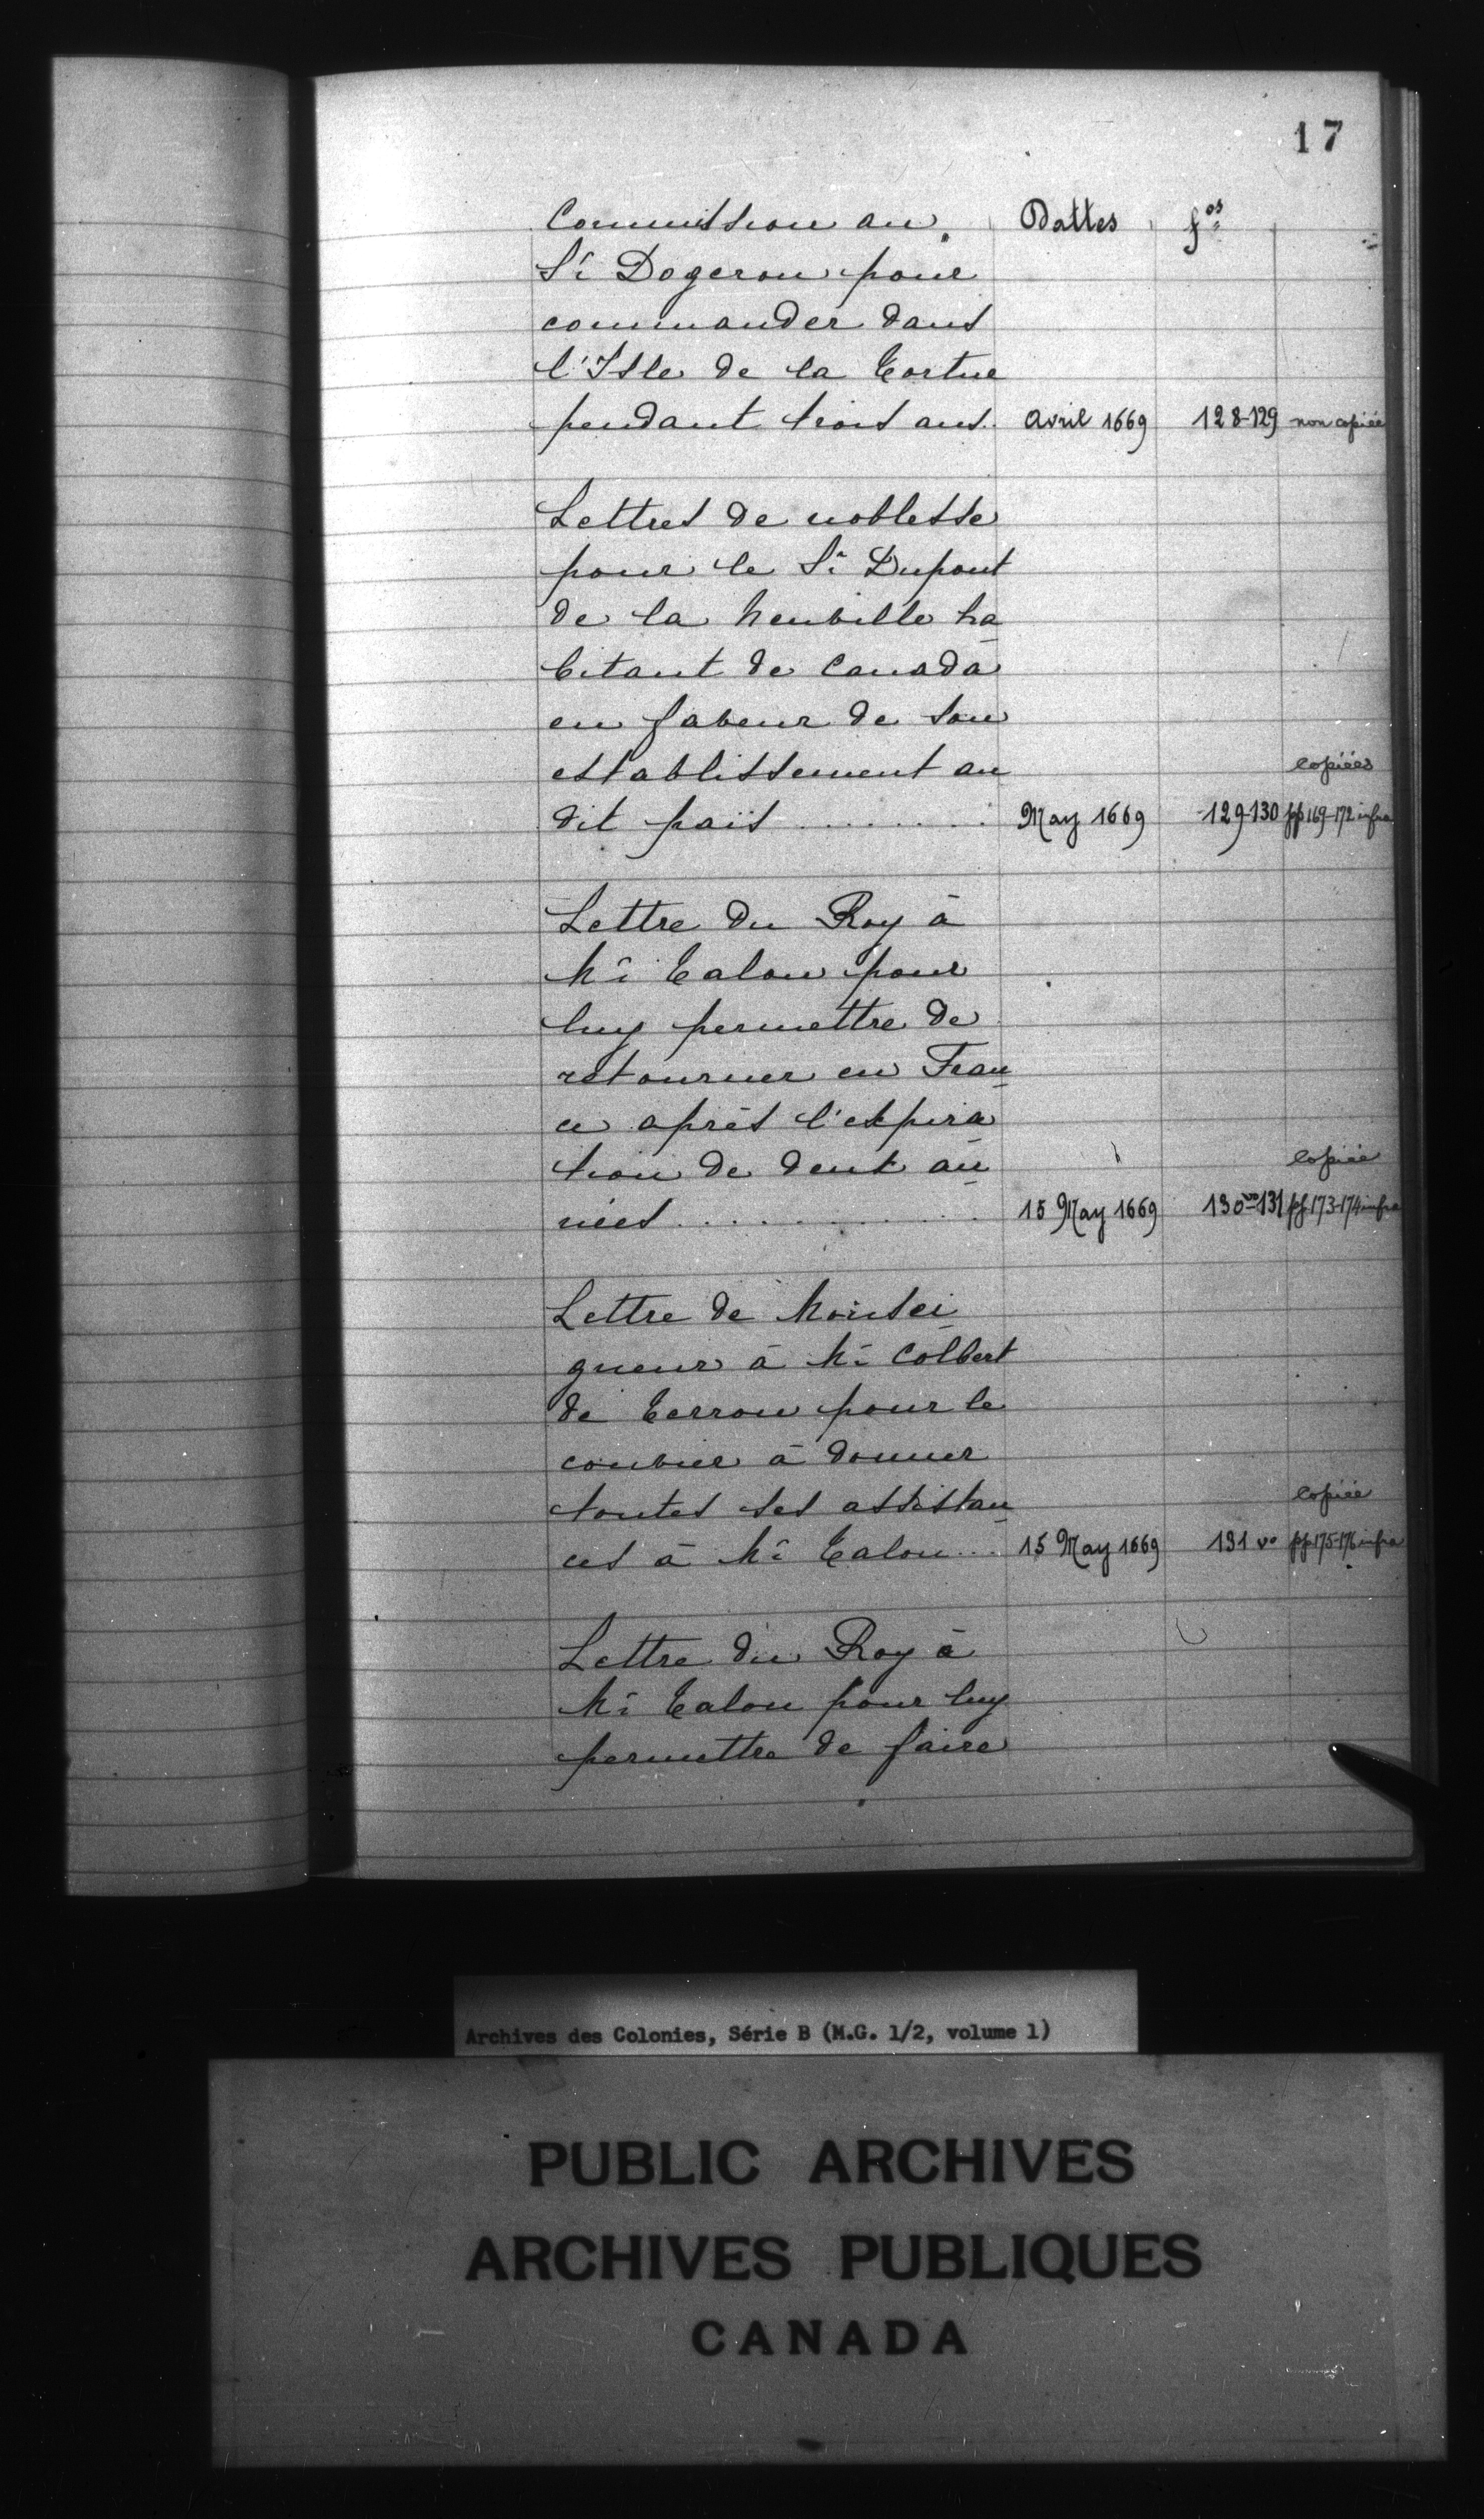 17
Commission au Dattes fos
Sr Dogeron pour
commander dans
l'Isle de la Tortue
pendant trois ans. Avril 1669 128-129 non copiée
Lettres de noblesse
pour le Sr Dupont
de la Neuville ha
bitant de Canada
en faveur de son
establissement au copiées
dit païs ......... May 1669 129-130 pp 169-172 infra
Lettre du Roy à
Mr Talon pour
luy permettre de
retourner en Fran
ce après l'expira
tion de deux an copiée
nées ............ 15 May 1669 130vo-131 pp. 173-174 infra
Lettre de Monsei
gneur à Mr Colbert
de Terron pour le
convier à donner
toutes ses assistan copiée
ces à Mr Talon ... 15 May 1669 131 vo pp 175-176 infra
Lettre du Roy à
Mr Talon pour luy
permettre de faire
Archives des Colonies, Série B (M.G. 1/2, volume 1)
PUBLIC ARCHIVES
ARCHIVES PUBLIQUES
CANADA